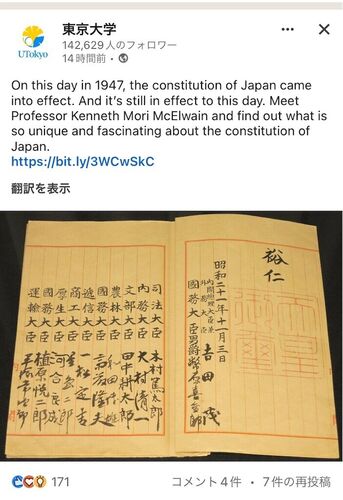 東京大学
142,629人のフォロワー
14時間前・
UTokyo
On this day in 1947, the constitution of Japan came
into effect. And it’s still in effect to this day. Meet
Professor Kenneth Mori McElwain and find out what is
so unique and fascinating about the constitution of
Japan.
https://bit.ly/3WCwSkC
翻訳を表示
裕仁
昭和二十一年十一月三日
内閣総理大臣兼
外務大臣 吉田茂
國務大臣 男爵幣原喜重郎
司法大臣 木村篤太郎
内務大臣 大村清一
文部大臣 田中耕太郎
農林大臣
國務大臣
逓信大臣 一松定吉
商工大臣
厚生大臣 河合良成
國務大臣 植原悦二郎
運輸大臣
171
コメント4件・7件の再投稿